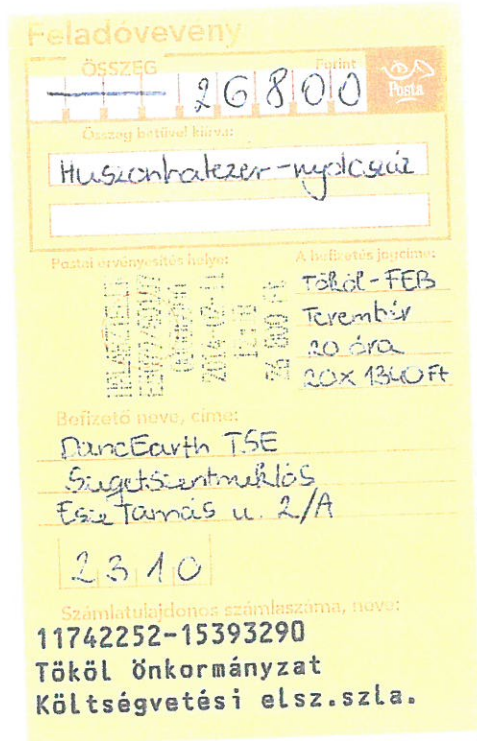 Feladóvevény
ÖSSZEG Forint
26800
Posta
Összeg betűvel kiírva:
Huszonhatezer-nyolcszáz
Postai érvényesítés helye: A befizetés jogcíme:
Tököl-FEB
Terembér
20 óra
20x 1340Ft
26 800 Ft
Befizető neve, címe:
DancEarth TSE
Szigetszentmiklós
Esze Tamás u. 2/A
2310
Számlatulajdonos számlaszáma, neve:
11742252-15393290
Tököl Önkormányzat
Költségvetési elsz.szla.